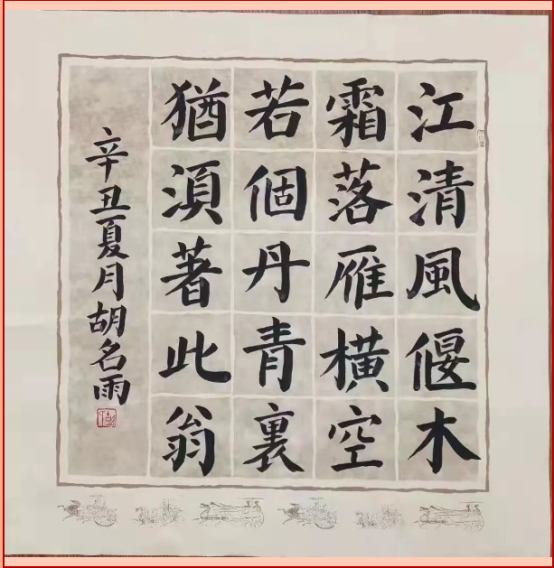 江清風偃木
霜落雁横空
若個丹青裏
猶湏著此翁
辛丑夏月胡名雨